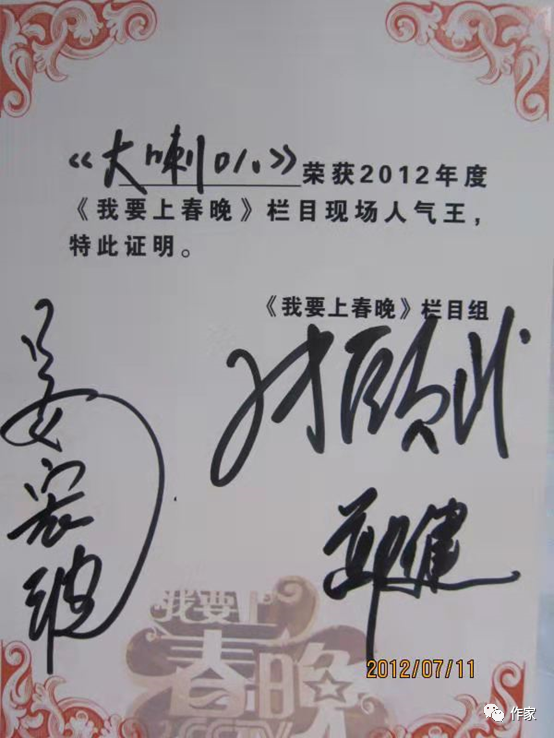 《大喇叭》荣获2012年度
《我要上春晚》栏目现场人气王，
特此证明。
《我要上春晚》栏目组
我要上
春晚
2012/07/11
作家